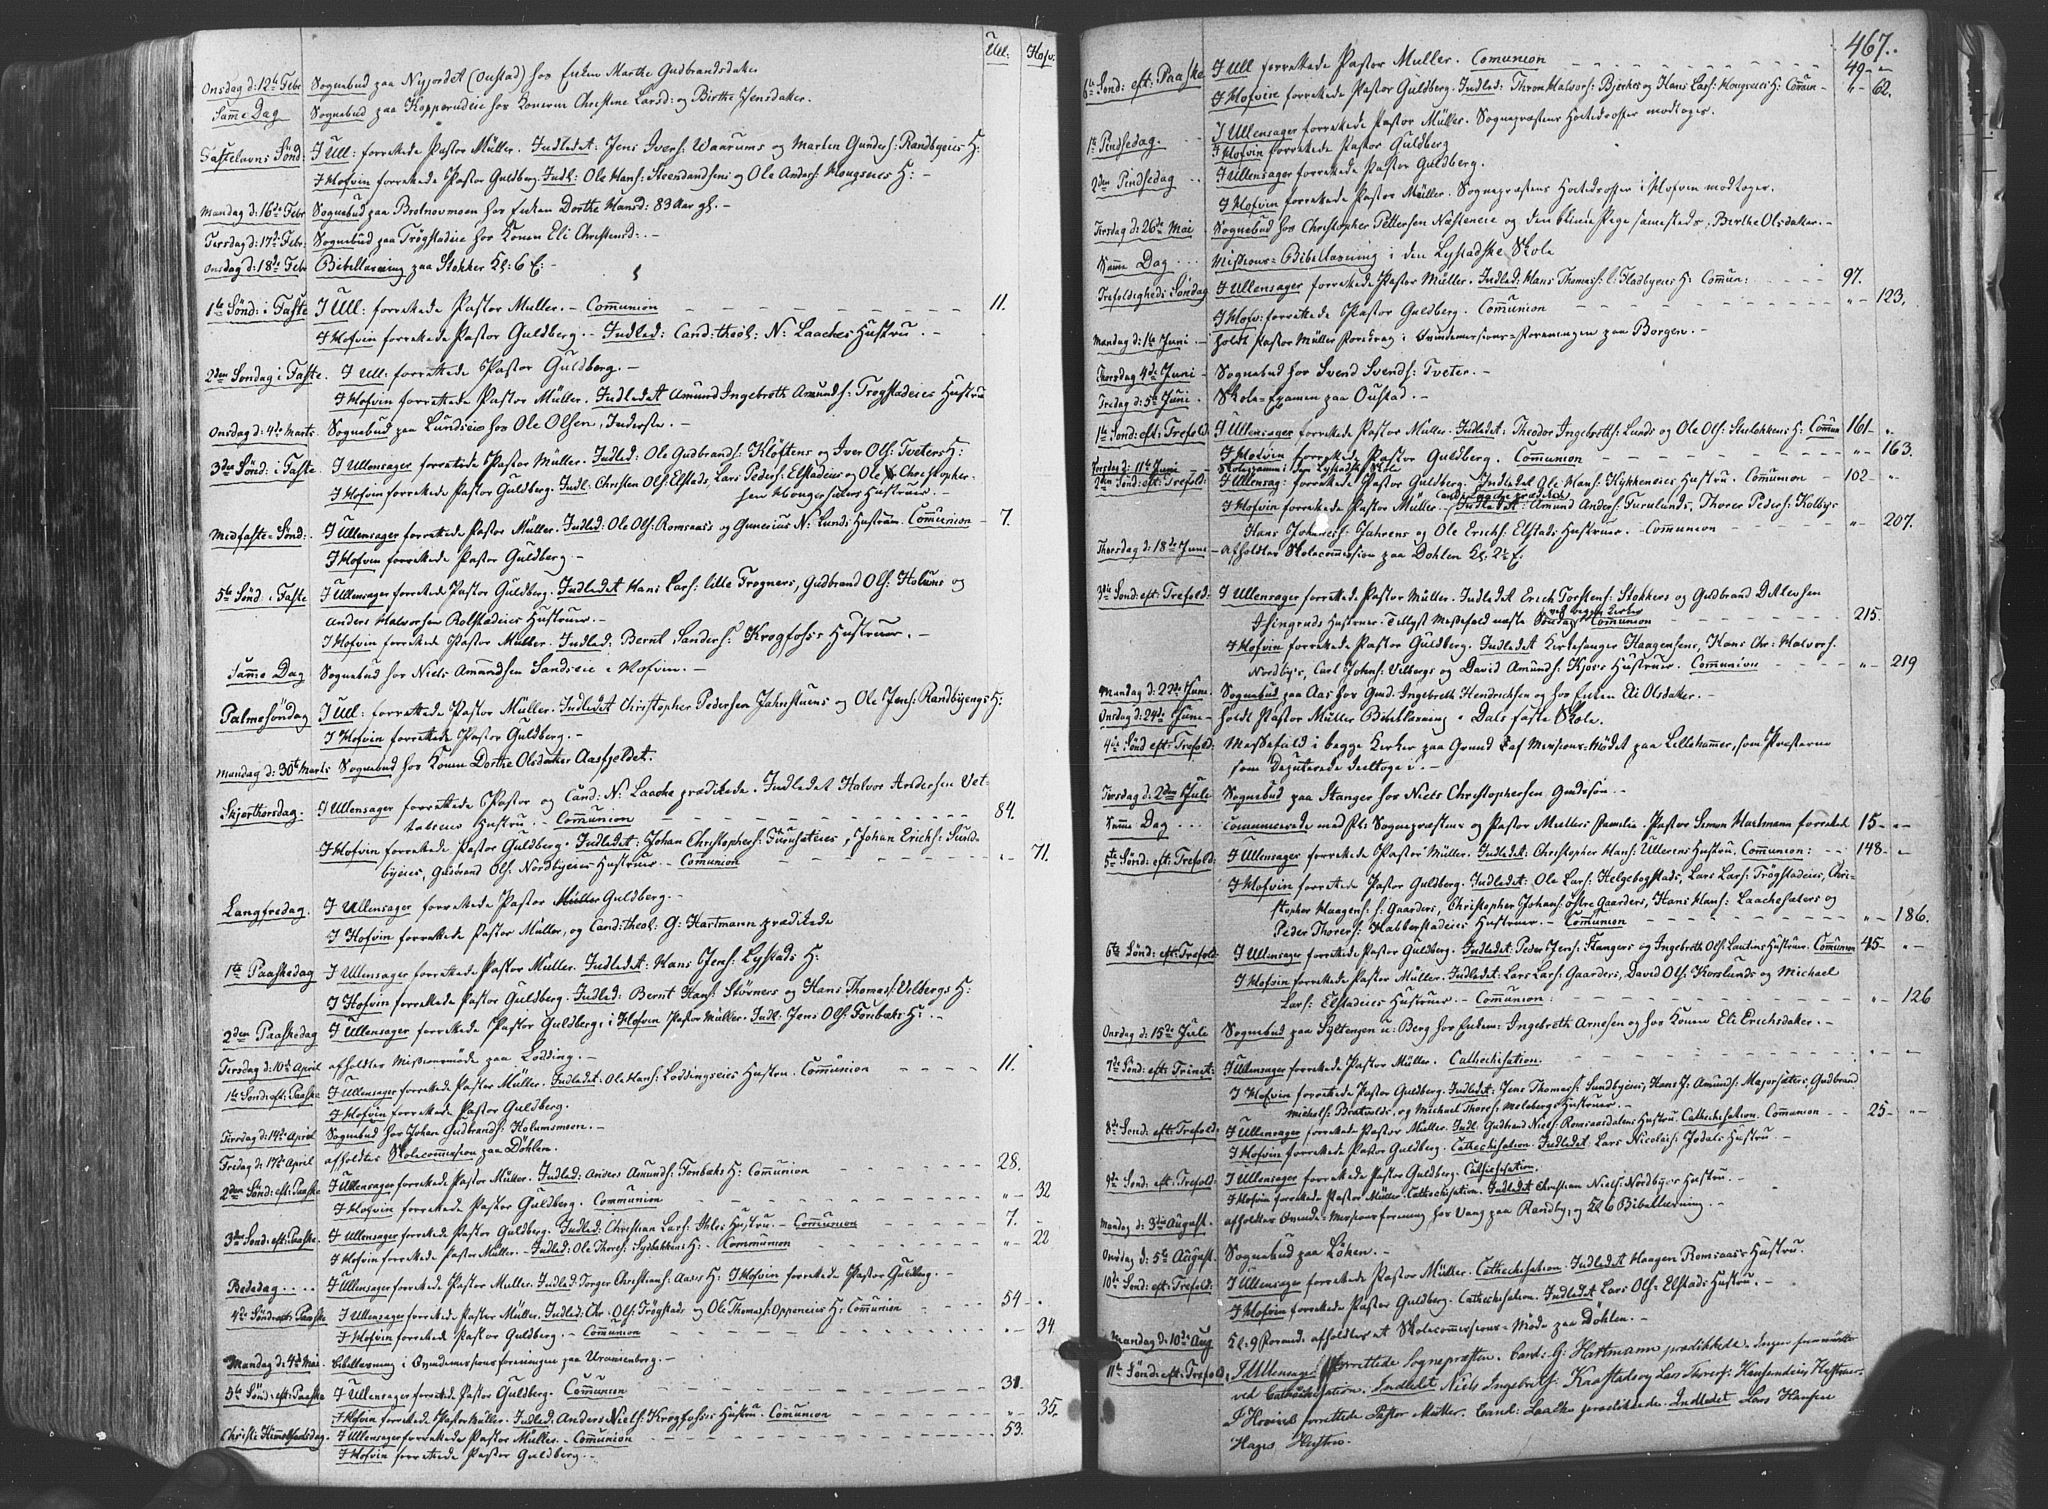 Ull: Hofv:
Onsdag d: 12te Febr Sognebud paa Nyjordet (Oustad) hos Enken Marthe Gudbrandsdater
Samme Dag Sognebud paa Kopperudeie hos Konerne Christine Larsd: og Birthe Jensdatter.
Fastelavns Sönd: I Ull: forrettede Pastor Müller. Indledet: Jens Ivers: Waarums og Martin Gunders: Randbyeies H:
I Hofvin forrettede Pastor Guldberg. Indl: Ole Hans: Steendansens og Ole Anders: Mongseies H: –
Mandag d: 16de Febr Sognebud paa Brotnovmoen hos Enken Dorthe Hansd: 83 Aar gl. –
Tirsdag d: 17de Febr: Sognebud paa Trögstadeie hos Konen Eli Christensd:. –
Onsdag d: 18de Febr Bibellæsning paa Stokker Kl: 6 E: –
1ste Sönd: i Faste I Ull: forrettede Pastor Müller. – Communion – 11.
I Hofvin forrettede Pastor Guldberg. – Indled: Cand: theol: N: Laaches Hustru. –
2den Söndag i Faste. I Ull: forrettede Pastor Guldberg. –
I Hofvin forrettede Pastor Müller. Indledet Amund Ingebreth Amunds: Trögstadeies Hustru
Onsdag d: 4de Marts. Sognebud paa Lundseie hos Ole Olsen, Inderste. –
3die Sönd: i Faste I Ullensager forrettede Pastor Müller. Indled: Ole Gudbrands: Klöftens og Iver Ols: Tveters H:
I Hofvin forrettede Pastor Guldberg. Indl: Christen Ols: Elstads, Lars Peders: Elstadeies og Ole Christopher-
sen Hustruer. –
Midfaste-Sönd: I Ullensager forrettede Pastor Müller. Indled: Ole Ols: Romsaas's og N: Lunds Hustruer. Communion – 7.
I Hofvin forrettede Pastor Guldberg –
5te Sönd: i Faste I Ullensager forrettede Pastor Guldberg. Indledet Hans Lars: lille Trogners, Gudbrand Ols: Holums og
Anders Halvorsen Rolstadeies Hustruer. –
I Hofvin forrettede Pastor Müller. Indled: Bernt Sanders: Krogfoss's Hustruer. –
Samme Dag Sognebud hos Niels Amundsen Sandseie i Hofvin. –
Palmesöndag I Ull: forrettede Pastor Müller. Indledet Christopher Pedersen Jahnstuens og Ole Jens: Randbyengs H:
I Hofvin forrettede Pastor Guldberg. –
Mandag d: 30te Marts Sognebud hos Konen Dorthe Olsdatter Aasfjeldet.
Skjerthorsdag. I Ullensager forrettede Pastor og Cand: N: Laache prædikede. Indledet Halvor Andersen Vet-
talseies Hustru. – Communion – 84.
I Hofvin forrettede Pastor Guldberg. Indledet: Johan Christophers: Furusæteies, Johan Erichs: Sund-
byeies, Gulbrand Ols: Nordbyeies Hustruer. – Comunion – „ – 71.
Langfredag. I Ullensager forrettede Pastor Guldberg. –
I Hofvin forrettede Pastor Müller, og Cand: theol: G: Hartmann prædikede
1ste Paaskedag I Ullensager forrettede Pastor Müller. Indledet: Hans Jens: Lystads H:
I Hofvin forrettede Pastor Guldberg. Indled: Bernt Hans: Stövners og Hans Thomas: Vilbergs H:
2den Paaskedag I Ullensager forrettede Pastor Guldberg: i Hofvin Pastor Müller. Indl: Jens Ols: Fonbæks H: –
Tirsdag d: 10de April afholdtes Missionsmöde paa Lodding. –
1ste Sönd: eft: Paaske I Ullensager forrettede Pastor Müller. Indledet: Ole Hans: Loddingseies Hustru. Communion – 11.
I Hofvin forrettede Pastor Guldberg.
Tirsdag d: 14de April Sognebud hos Johan Gudbrands: Holumsmoen. –
Fredag d: 17de April afholdtes Skolecommission paa Döhlen.
2den Sönd: eft: Paaske I Ullensager forrettede Pastor Müller. Indledet: Anders Amunds: Fonbæks H: Communion – 28.
I Hofvin forrettede Pastor Guldberg. Communion – „ – 32
3die Sönd: eft: Paaske. I Ullensager forrettede Pastor Guldberg. Indled: Christian Lars: Ahles Hustru. – Communion – 7.
I Hofvin forrettede Pastor Müller. – Indled: Ole Thores: Sysbakkens H: – Communion – „ – 22
Bededag.... I Ullensager forrettede Pastor Müller. Indled: Torger Christians: Aases H: I Hofvin forrettede Pastor Guldberg. –
4de Sönd: eft: Paaske I Ullensager forrettede Pastor Müller. Indled: Chr: Ols: Trögstads og Ole Thomas: Oppeneies H: Communion – 54 – „
I Hofvin forrettede Pastor Guldberg. – Comunion – „ – 34.
Mandag d: 4de Mai. Bibellæsning i Qvindemissionsforeningen paa Uranienborg. –
5te Sönd: eft: Paaske I Ullensager forrettede Pastor Guldberg. Comunion – 31.
I Hofvin forrettede Pastor Müller. Indled: Anders Niels: Krogfoss's Hustru. Comunion – „ – 35.
Christi Himmelfartsdag. I Ullensager forrettede Pastor Müller. – Comunion – 53.
I Hofvin forrettede Pastor Guldberg. –
467.
6te Sönd: eft: Paaske I Ull forrettede Pastor Müller. Comunion 49 – „
I Hofvin forrettede Pastor Guldberg. Indled: Thron Halvors: Bjerkes og Hans Lars: Mongseies H: Comun – „ – 62.
1ste Pindsedag. I Ullensager forrettede Pastor Müller. Sognepræstens Höitidsoffer modtoges.
I Hofvin forrettede Pastor Guldberg
2den Pindsedag I Ullensager forrettede Pastor Guldberg.
I Hofvin forrettede Pastor Müller. Sognepræstens Höitidsoffer i Hofvin modtoges.
Tirsdag d: 26de Mai Sognebud hos Christopher Pettersen Næsteneie og den blinde Pige sammesteds, Berthe Olsdatter. –
Samme Dag... Missions-Bibellæsning i den Lystadske Skole
Trefoldigheds Söndag I Ullensager forrettede Pastor Müller. Indled: Hans Thomas: l: Fladbyeies H: Comun: – 97.
I Hofv: forrettede Pastor Guldberg. Comunion – „ – 123.
Mandag d: 1ste Juni – holdt Pastor Müller Foredrag i Qvindemissions-Foreningen paa Borgen. –
Thorsdag 4de Juni – Sognebud hos Svend Svends: Tveter. –
Fredag d: 5te Juni. Skole-Examen paa Oustad. –
1ste Sönd: eft: Trefold: I Ullensager forrettede Pastor Müller. Indledet: Theodor Ingebreths: Lunds og Ole Ols: Stulökkens H: Comun 161 – „
I Hofvin forrettede Pastor Guldberg. Comunion – „ – 163.
Torsdag d: 11te Juni Skoleexamen i den Lystadske Skole
2den Sönd: eft: Trefold: I Ullensag: forrettede Pastor Guldberg. Indledet Ole Hans: Kykkeneies Hustru. Comunion – 102 – „
Cand: Laache prædiked
I Hofvin forrettede Pastor Müller – Indledet: Amund Anders: Furulunds, Thorer Peders: Kolbys
Hans Johannes: Jahrens og Ole Erichs: Elstads Hustruer. – Communion – „ – 207.
Thorsdag d: 18de Juni – afholdtes Skolecommission paa Döhlen Kl. 2½ E.
3die Sönd: eft: Trefold: I Ullensager forrettede Pastor Müller. Indledet Erich Torstens: Stokkers og Gudbrand Ditlevsen
ved begge Kirker
Hustruer. Tillyst Messefald næste Söndag Communion – 215.
I Hofvin forrettede Pastor Guldberg. Indledet Kirkesanger Haagensens, Hans Chr: Halvors.
Nordby's, Carl Johans: Vilbergs og David Amunds: Kjos's Hustruer. Communion – „ – 219
Mandag d: 22de Juni. Sognebud paa Aas hos Gmd. Ingebreth Hendrichsen og hos Enken Eli Olsdatter. –
Onsdag d: 24de Juni – holdt Pastor Müller Bibellæsning i Dals faste Skole.
4de Sönd eft: Trefold: Messefald i begge Kirker paa Grund af Missions-Mödet paa Lillehammer, som Præsterne
som Deputerede deeltoge i. –
Torsdag d: 2den Juli Sognebud paa Stanger hos Niels Christophersen –
Samme Dag.... Communicerede med Kl: Sognepræstens og Pastor Müllers Familie. Pastor Simon Hartmann forrettede 15 – „
5te Sönd: eft: Trefold: I Ullensager forrettede Pastor Müller. Indledet: Christopher Hans: Ullerens Hustru. Communion: – 148 – „
I Hofvin forrettede Pastor Guldberg. Indledet: Ole Lars: Helgebogstads, Lars Lars: Trögstadeies, Chri-
stopher Haagens: s: Gaarders, Christopher Johans: östre Gaarders, Hans Hans: Laachesæters og
Peder Thorers: Habberstadeies Hustruer. – Comunion – „ – 186.
6te Sönd: eft: Trefold: I Ullensager forrettede Pastor Guldberg. Indledet: Peder Jens: Stangers og Ingebreth Ols: Hustruer. Communion 45 – „
I Hofvin forrettede Pastor Müller. Indledet: Lars Lars: Gaarders, David Ols: Korslunds og Michael
Lars: Elstadeies Hustruer. – Comunion: – „ – 126
Onsdag d: 15de Juli Sognebud paa Syltengen u: Berg hos Enkem: Ingebreth Arnesen og hos Konen Eli Erichsdatter. –
7de Sönd: eft: Trinit: I Ullensager forrettede Pastor Müller. Cathechisation. – „ – „
I Hofvin forrettede Pastor Guldberg. Indledet: Jens Thomas: Sundbyeies, Hans J: Amunds: Majorsæters, Gudbrand
Michels: Bratvolds, og Michael Thores: Melbergs Hustruer. –
8de Sönd: eft: Trefold: I Ullensager forrettede Pastor Müller. Indl: Gudbrand Niels: Romsaasdalens Hustru. Cathechisation. Comunion – 25 – „
I Hofvin forrettede Pastor Guldberg. Cathechisation. Indledet: Lars Nicolais: Jodals Hustru. –
9de Sönd: eft: Trefold: I Ullensager forrettede Pastor Guldberg. Cathechisation.
I Hofvin forrettede Pastor Müller Cathechisation. Indledet Christian Niels: Nordbyes Hustru. –
Mandag d: 3die August. afholdtes Qvinde-Missionsforening hos Vang paa Randby, og Kl 6 Bibellæsning. –
Onsdag d: 5te August. Sognebud paa Löken. –
10de Sönd: eft: Trefold: I Ullensager forrettede Pastor Müller. Cathechisation. Indledet Haagen Romsaas's Hustru.
I Hofvin forrettede Pastor Guldberg. Cathechisation. Indledet Lars Ols: Elstads Hustru. –
Mandag d: 10de Aug. Kl. 9 Formd. afholdtes et Skolecommissions-Möde paa Döhlen. –
11te Sönd: eft: Trefold: I Ullensager forrettede Sognepræsten. Cand: G: Hartmann prædikede.
ved Catechisation. Indledet Niels Ingebrets: Kaasstads og Lars Thores: Hustruer.
I Hovind forrettede Pastor Müller. Cand: Laache prædikede. Indledet Lars Hansen
Hages Hustru.